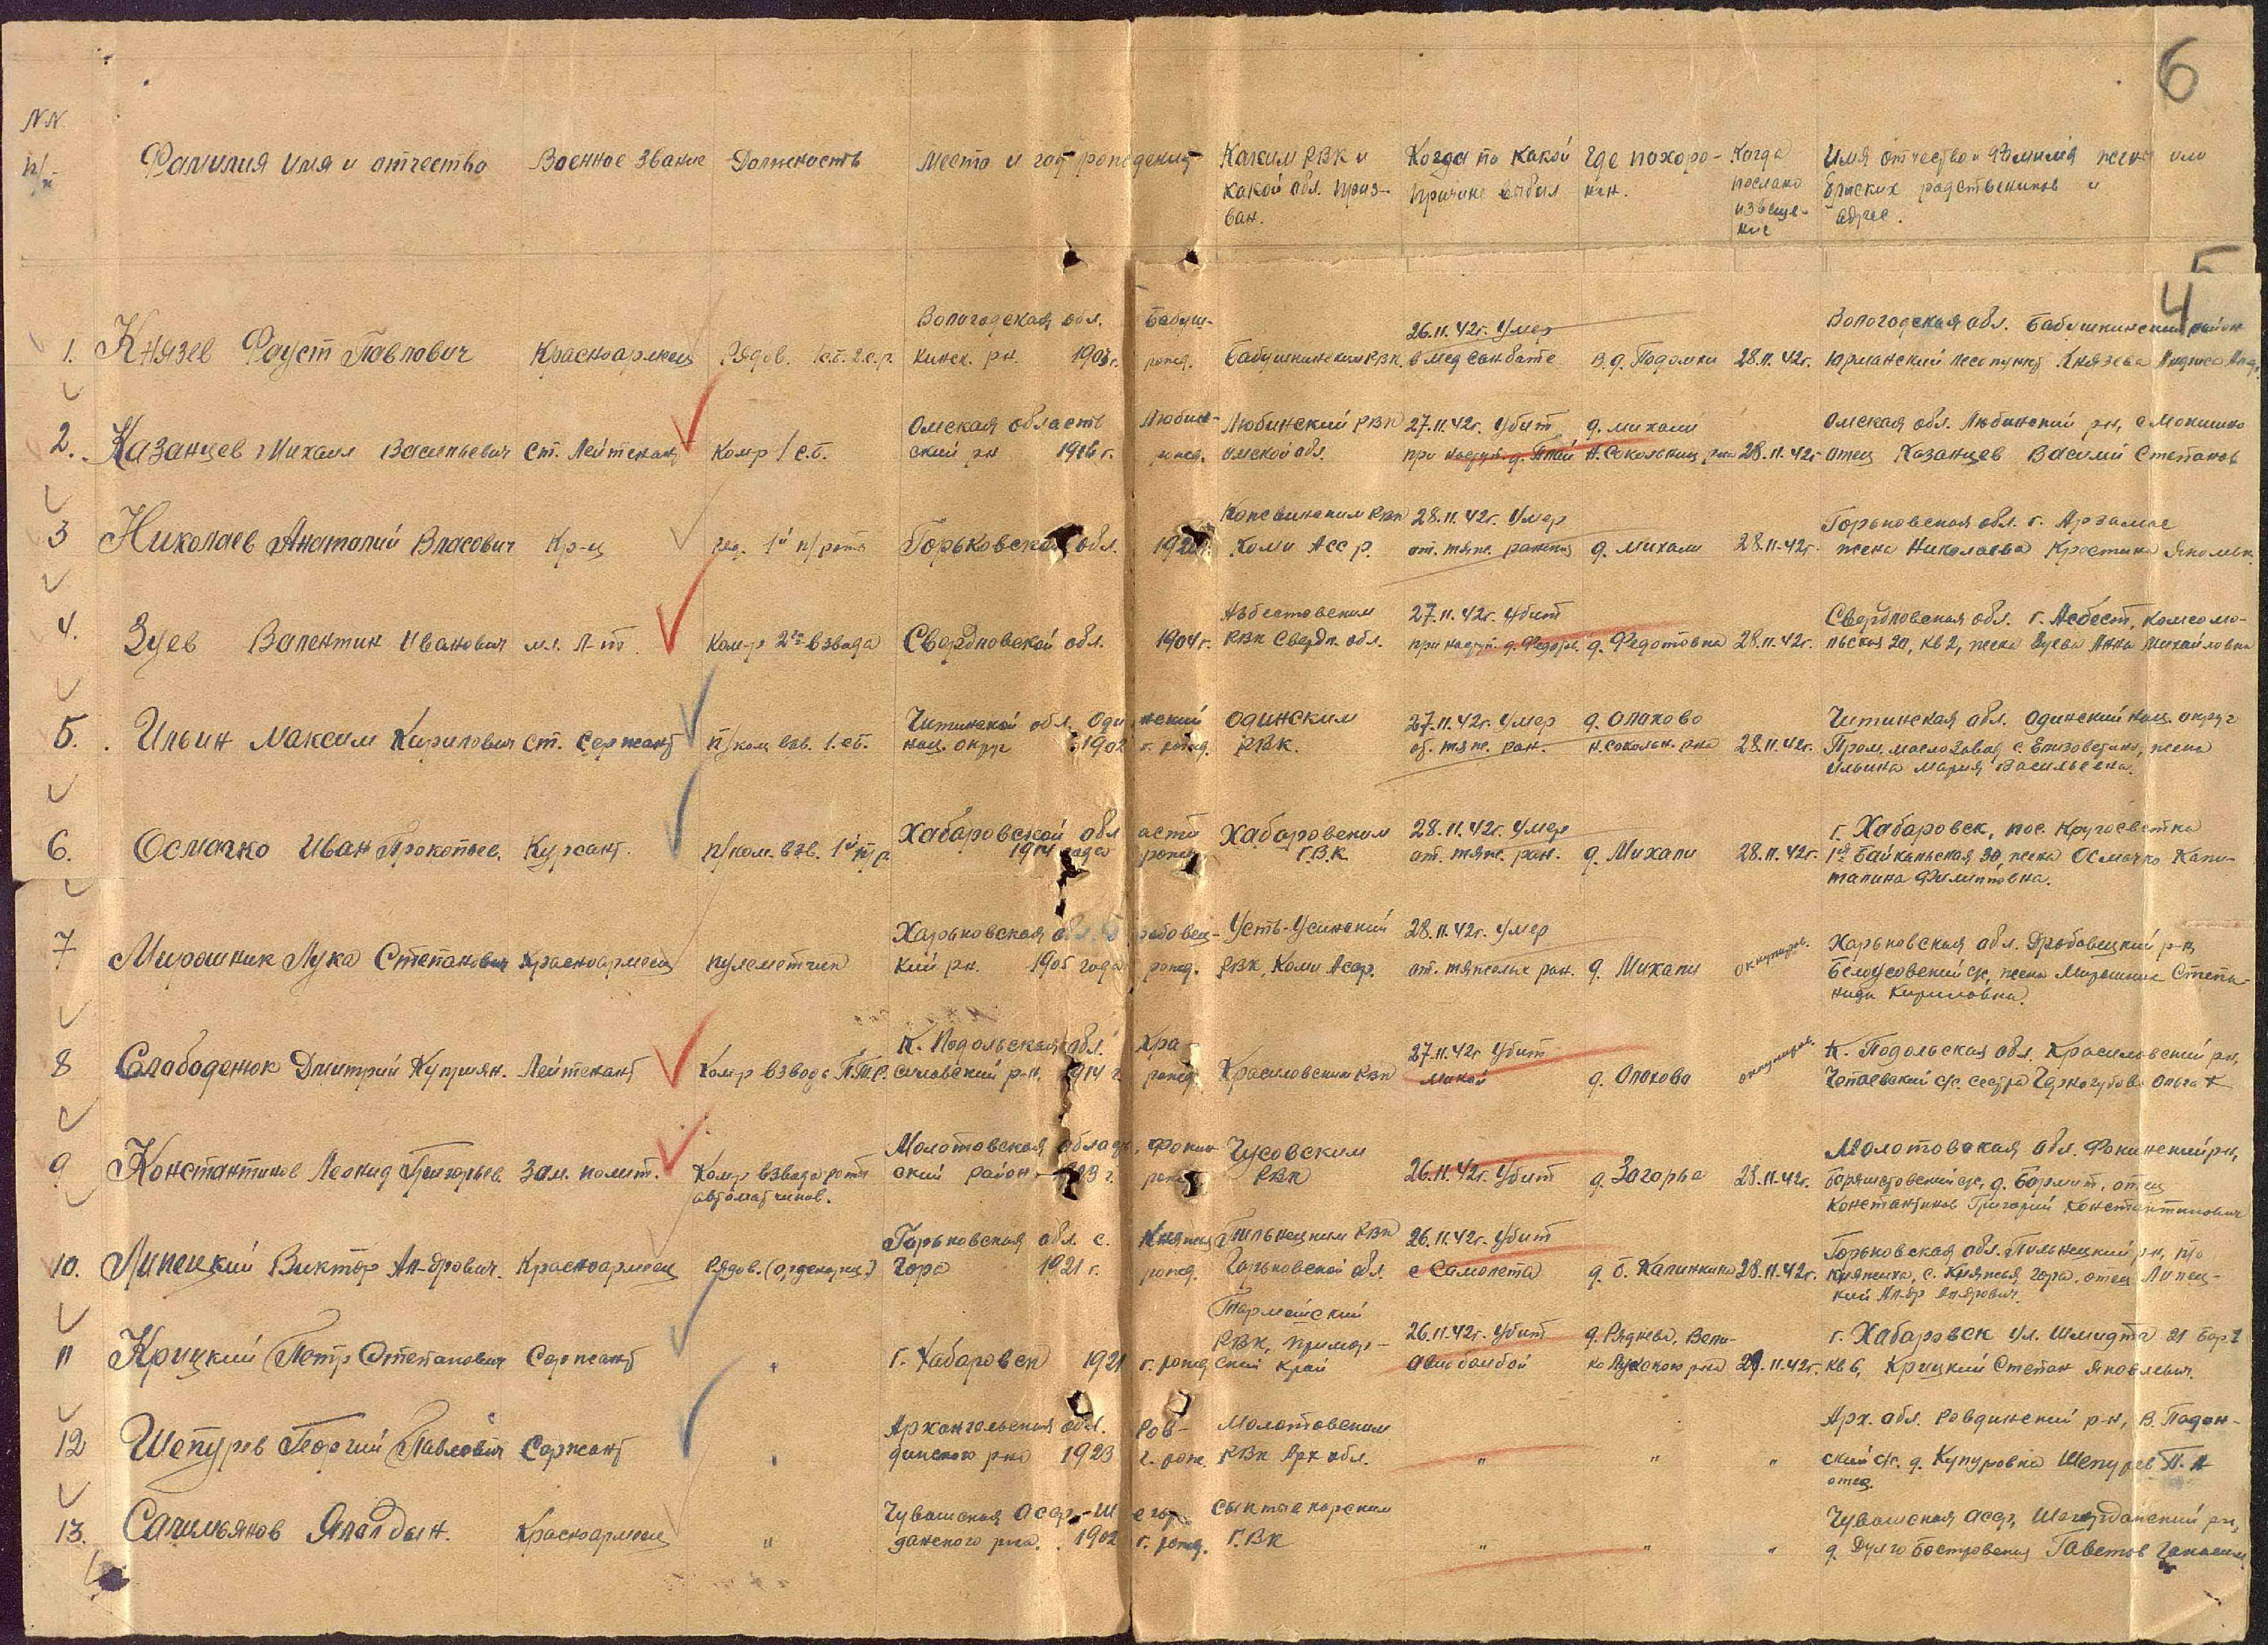 6
NN
п/п
Фамилия имя и отчество
Военное звание
Должность
Место и год рождения
Каким РВК и
какой обл. приз-
ван.
Когда по какой
причине выбыл
Где похоро-
нен.
Когда
послано
извеще-
ние
Имя отчество и фамилия жены или
близких родственников и
адрес.
5
4
1. Князев Фауст Павлович
Красноармеец
Рядов. 1 с.б. 2 с.р.
Вологодская обл. Бабуш-
кинск. рн. 1903 г. рожд.
Бабушкинским РВК.
26.11.42г. Умер
в медсанбате
в д. Подомхи
28.11.42г.
Вологодская обл. Бабушкинский район
Юрманский лесопункт Князева
2. Казанцев Михаил Васильевич
Ст. Лейтенант
Ком-р 1 с.б.
Омская область Любин-
ский рн 1916 г. рожд.
Любинский РВК
Омской обл.
27.11.42г. Убит
при наступ. д.
д. Михали
Н. Сокольниц. рна
28.11.42г
Омская обл. Любинский рн,
отец Казанцев Василий Степанов
3 Николаев Анатолий Власович
Кр-ц
ряд. 1й п/роты
Горьковская обл.
РВК
Коми Асср.
28.11.42г. Умер
от. тяж. ранения
д. Михали
28.11.42г.
Горьковская обл. г. Арзамас
жена Николаева
4. Зуев Валентин Иванович
мл. л-т.
Ком-р 2го взвода
Свердловской обл. 1904 г.
Асбестовским
РВК Свердл. обл.
27.11.42г. Убит
при наступ. д. Федорк.
д. Федотовка
28.11.42г.
Свердловская обл. г. Асбест, Комсомо-
льская 20, кв 2, жена Зуева Анна Михайловна
5. Ильин Максим Кирилович
Ст. Сержант
п/ком. взв. 1 сб.
Читинской обл. Оди нский
нац. округ 1902 г. рожд.
Одинским
РВК.
27.11.42г. Умер
от. тяж. ран.
д. Олохово
Н. Сокольн. рна
28.11.42г.
Читинская обл. Одинский нац. округ
Пром. маслозавод с. Елизоветино, жена
Ильина Мария Васильевна.
6. Осмачко Иван Прокопьев.
Курсант.
п/ком. взв. 1й п/р.
Хабаровской обл асти
1914 года рожд
Хабаровским
Г.В.К.
28.11.42г. Умер
от. тяж. ран.
д. Михали
28.11.42г.
г. Хабаровск, пос. Кругосветка
1я Байкальская 30, жена Осмачко Капи-
талина Филиповна.
7 Мирошник Лука Степанович
Красноармеец
пулеметчик
Харьковская
кий рн. 1905 года рожд.
Усть-Усинский
РВК, Коми Асср.
28.11.42г. Умер
от. тяжелых ран.
д. Михали
оккупиров.
Харьковская обл. Дробовецкий р-н,
Белоусовский с/с, жена Мирошник Степа-
нида Кириловна.
8 Слабоденюк Дмитрий Куприян.
Лейтенант
Ком-р взвода П.Т.Р.
К. Подольская обл. Кра
силовский р-н. 1914 г. рожд.
Красиловским РВК
27.11.42г Убит
миной
д. Олохово
оккупиров.
К. Подольская обл. Красиловский рн,
Чепаевский с/с. сестра Черногубова Ольга К
9 Константинов Леонид Григорьев.
Зам. полит.
Ком-р взвода роты
автоматчиков.
Молотовская область. Фокин
ский район рожд.
Чусовским
РВК
26.11.42г. Убит
д. Загорье
28.11.42г.
Молотовская обл. Фокинский рн,
отец
Константинов Григорий Константинович
10. Липецкий Виктор Ал-дрович.
Красноармеец
Рядов. (орденонец.)
Горьковская обл. с. Княжья
Гора 1921 г. рожд.
Пильнецким РВК
Горьковской обл.
26.11.42г. Убит
с самолета
д. Б. Калинкино
28.11.42г.
Горьковская обл. Пильнецкий рн, п/о
Княжиха, с. Княжья Гора. отец Липец-
кий Ал-др
11 Крицкий Петр Степанович
Сержант
"
г. Хабаровск 1921 г. рожд
РВК, примор-
ский край
26.11.42г. Убит
авиабомбой
д. Ряднева, Вели-
ко Лукского рна
29.11.42г.
г. Хабаровск ул. Шмидта 21
кв 6, Крицкий Степан Яковлевич.
12 Шепурев Георгий Павлович
Сержант
"
Архангельская обл. Ров-
динского рна 1923 г. рож.
Молотовским
РВК Арх обл.
"
"
"
Арх. обл. Ровдинский р-н, В. Паден-
ский с/с. д. Купуровка Шепурев П. А
отец.
13. Салимьянов Ялалдын.
Красноармеец
"
Чувашская Асср-Ш
данского рна. 1902 г. рожд.
Сыктывкарским
Г.ВК
"
"
"
Чувашская Асср,
д.